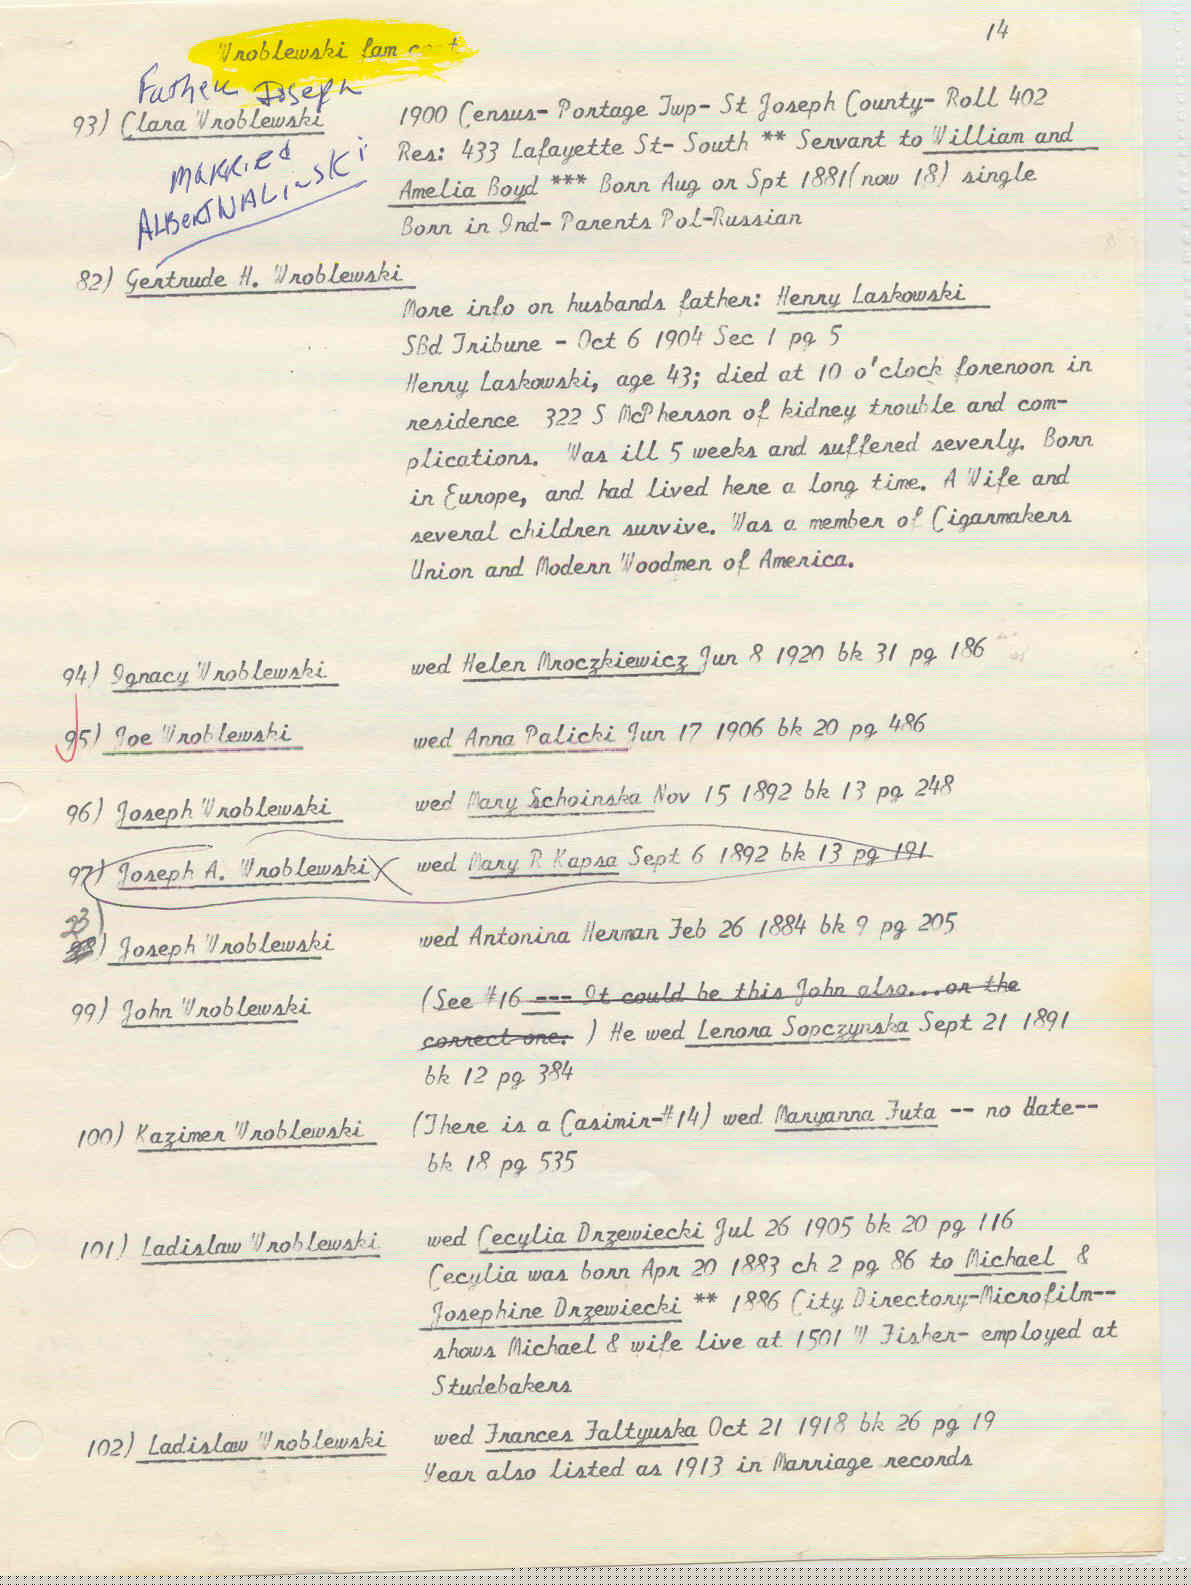 14
Wroblewski fam cont
Father Joseph
93) Clara Wroblewski
Married
Albert Nalinski
1900 Census- Portage Twp- St Joseph County- Roll 402
Res: 433 Lafayette St- South ** Servant to William and
Amelia Boyd *** Born Aug or Spt 1881(now 18) single
Born in Ind- Parents Pol-Russian
82) Gertrude H. Wroblewski
More info on husbands father: Henry Laskowski
SBd Tribune - Oct 6 1904 Sec 1 pg 5
Henry Laskowski, age 43; died at 10 o'clock forenoon in
residence 322 S McPherson of kidney trouble and com-
plications. Was ill 5 weeks and suffered severly. Born
in Europe, and had lived here a long time. A Wife and
several children survive. Was a member of Cigarmakers
Union and Modern Woodmen of America.
94) Ignacy Wroblewski wed Helen Mroczkiewicz Jun 8 1920 bk 31 pg 186
95) Joe Wroblewski wed Anna Palicki Jun 17 1906 bk 20 pg 486
96) Joseph Wroblewski wed Mary Schoinska Nov 15 1892 bk 13 pg 248
97) Joseph A. Wroblewski X wed Mary R Kapsa Sept 6 1892 bk 13 pg 191
23
98) Joseph Wroblewski wed Antonina Herman Feb 26 1884 bk 9 pg 205
99) John Wroblewski (See #16 --- It could be this John also...or the
correct one. ) He wed Lenora Sopczynska Sept 21 1891
bk 12 pg 384
100) Kazimer Wroblewski (There is a Casimir-#14) wed Maryanna Futa -- no date--
bk 18 pg 535
101) Ladislaw Wroblewski wed Cecylia Drzewiecki Jul 26 1905 bk 20 pg 116
Cecylia was born Apr 20 1883 ch 2 pg 86 to Michael &
Josephine Drzewiecki ** 1886 City Directory-Microfilm--
shows Michael & wife live at 1501 W Fisher- employed at
Studebakers
102) Ladislaw Wroblewski wed Frances Faltyuska Oct 21 1918 bk 26 pg 19
Year also listed as 1913 in Marriage records